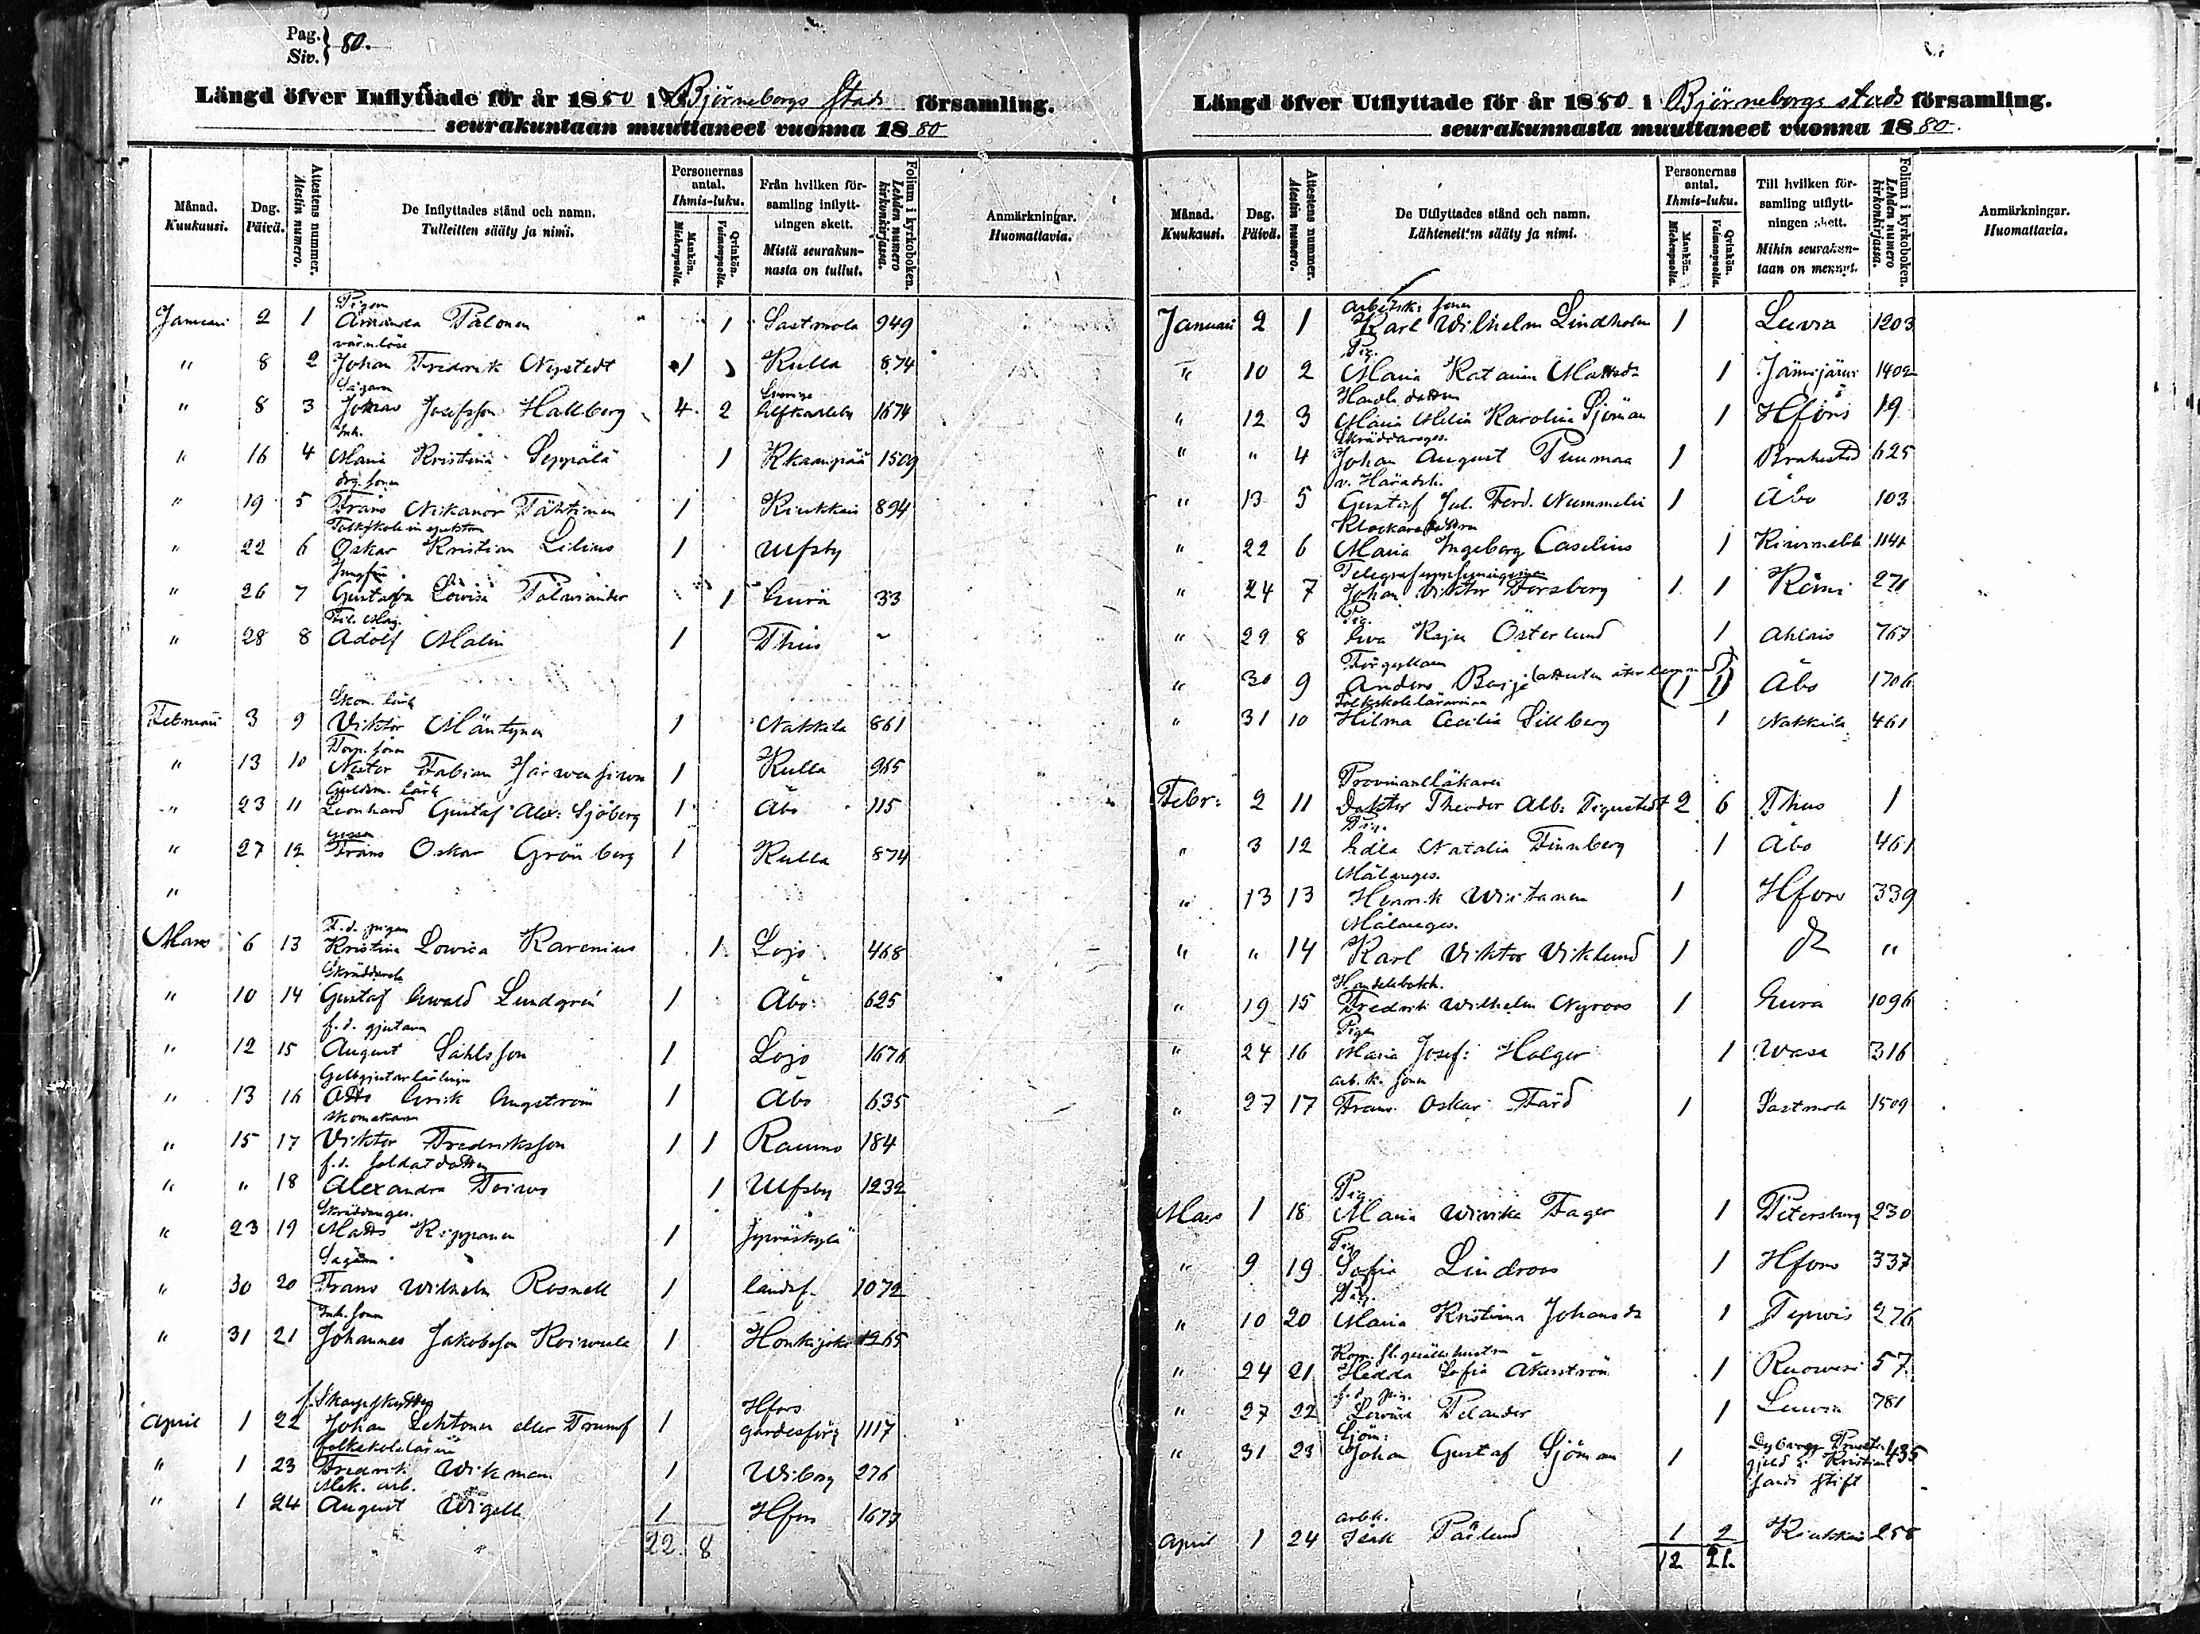 Pag. } 80.
Siv.
Längd öfver Inflyttade för år 1880 i Björneborgs Stads församling.
seurakuntaan muuttaneet vuonna 1880
Månad. Kuukausi.
Dag. Päivä.
Attestens nummer. Atestin numero.
De Inflyttades stånd och namn. Tulleitten sääty ja nimi.
Personernas antal. Ihmis-luku.
Mankön. Miehenpuolia.
Qvinkön. Vaimonpuolia.
Från hvilken församling inflyttningen skett. Mistä seurakunnasta on tullut.
Folium i kyrkoboken. Lehden numero kirkonkirjassa.
Anmärkningar. Huomattavia.
Pigan
Januari 2 1 Amanda Palonen 1 Sastmola 949
värnlöse
" 8 2 Johan Fredrik Nystedt 1 Kulla 874
Sågaren Sverige
" 8 3 Johan Josefsson Hallberg 4 2 Elfkarleby 1674
Inh.
" 16 4 Maria Kristina Seppälä 1 Kkaanpää 1509
drg. sonen
" 19 5 Frans Nikanor Tähtinen 1 Kiukkais 894
Folkskoleinspektorn
" 22 6 Oskar Kristian Lilius 1 Ulfsby
Jungfru
" 26 7 Gustafva Lovisa Palmander 1 Eura 33
Fil. Mag.
" 28 8 Adolf Malin 1 Thus ~
Skom. lärl.
Februari 3 9 Viktor Mäntynen 1 Nakkila 861
Torp. sonen
" 13 10 Nestor Fabian 1 Kulla 965
Guldsm. lärl.
" 23 11 Leonhard Gustaf Alex: Sjöberg 1 Åbo 115
gossen
" 27 12 Frans Oskar Grönberg 1 Kulla 874
"
F.d. pigan
Mars 6 13 Kristina Lovisa Karenius 1 Lojo 468
" 10 14 Gustaf Ewald Lundgrén 1 Åbo 625
f.d. gjutaren
" 12 15 August Sahlsson 1 Lojo 1676
Gelbgjutarlärlingen
" 13 16 Otto Henrik Engström 1 Åbo 635
skomakaren
" 15 17 Viktor Fredriksson 1 1 Raumo 184
f.d. soldatdottren
" " 18 Alexandra Toivos 1 Ulfsby 1232
Skräddareges.
" 23 19 Matts Kippanen 1 Jyväskylä
Sågaren
" 30 20 Frans Wilhelm Rosnell 1 landsf. 1072
Inh. sonen
" 31 21 Johannes Jakobsson Koiwula 1 Honkijoki 1265
f. Skarpskytten Hfors
April 1 22 Johan Lehtonen eller Trumf 1 gardesförs 1117
folkskolelärare
" 1 23 Fredrik Wikman 1 Wiborg 276
Mek. arb.
" 1 24 August Wigell 1 Hfors 1677
22 8
Längd öfver Utflyttade för år 1880 i Björneborgs stads församling.
seurakunnasta muuttaneet vuonna 1880.
Månad. Kuukausi.
Dag. Päivä.
Attestens nummer. Atestin numero.
De Utflyttades stånd och namn. Lähteneitten sääty ja nimi.
Personernas antal. Ihmis-luku.
Mankön. Miehenpuolia.
Qvinkön. Vaimonpuolia.
Till hvilken församling utflyttningen skett. Mihin seurakuntaan on mennyt.
Folium i kyrkoboken. Lehden numero kirkonkirjassa.
Anmärkningar. Huomattavia.
arbetsk. sonen
Januari 2 1 Karl Wilhelm Lindholm 1 Luvia 1203
Pig.
" 10 2 Maria Katarina Mattsdr 1 Jämijärvi 1402
Handl. dottren
" 12 3 Maria Melia Karolina Sjöman 1 Hfors 19
Skräddareges.
" " 4 Johan August Puumaa 1 Brahestad 625
v. Häradsh.
" 13 5 Gustaf Jul. Ferd. Nummelin 1 Åbo 103
Klockaredottren
" 22 6 Maria Ingeborg Caselius 1 Kiuvinebb 1141
" 24 7 Johan Viktor Forsberg 1 1 Kemi 271
Pig.
" 29 8 Eva Kajsa Österlund 1 Ahlais 767
Färgegesällen
" 30 9 Anders Basje (attesten återlemnad) (1 1) Åbo 1706
Folkskolelärarinnan
" 31 10 Hilma Cecilia Sillberg 1 Nakkila 461
Provincialläkaren
Febr: 2 11 Doktor Theodor Alb: Tigerstedt 2 6 Thus 1
Pig.
" 3 12 Edla Natalia Finnberg 1 Åbo 461
Målareges.
" 13 13 Henrik Wirtanen 1 Hfors 339
Målareges.
" " 14 Karl Viktor Viklund 1 do "
Handelsbokh.
" 19 15 Fredrik Wilhelm Nyroos 1 Eura 1096
Pigan
" 24 16 Maria Josef: Holger 1 Wasa 316
arb. k. sonen
" 27 17 Frans Oskar Färd 1 Sastmola 1509
Pig.
Mars 1 18 Maria Wivika Fager 1 Petersburg 230
Pig.
" 9 19 Sofia Lindroos 1 Hfors 337
Pig.
" 10 20 Maria Kristina Johansdr 1 Teperois 276
" 24 21 Hedda Sofia Åkerström 1 Ruovesi 57
f.d. pig.
" 27 22 Lovisa Pelander 1 Luvia 781
Sjöm:
" 31 23 Johan Gustaf Sjöman 1 Dybvaags Præste- 435
gjeld i Kristian
sands stift
arbk.
April 1 24 Isak Påilund 1 2 Kiukkais 258
12 21.